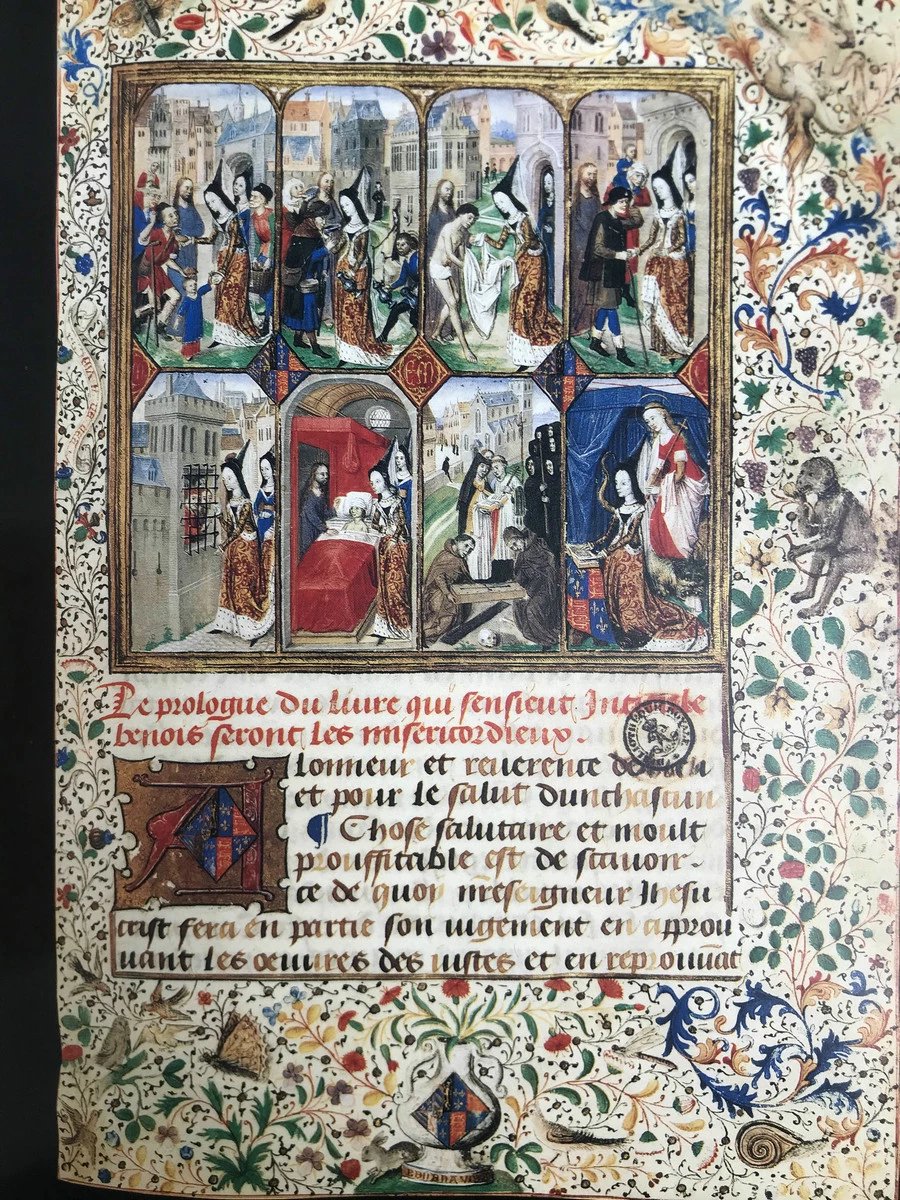 Le prologue du liure qui sensieut
benois seront les misericordieux.
Alonneur et reuerence
et pour le salut dunchascun
¶ Chose salutaire et moult
prouffitable est de scauoir
ce de quoy nr̃eseigneur Ihesu
crist fera en partie son iugement en approu
uant les œuures des iustes et en reprouuãt